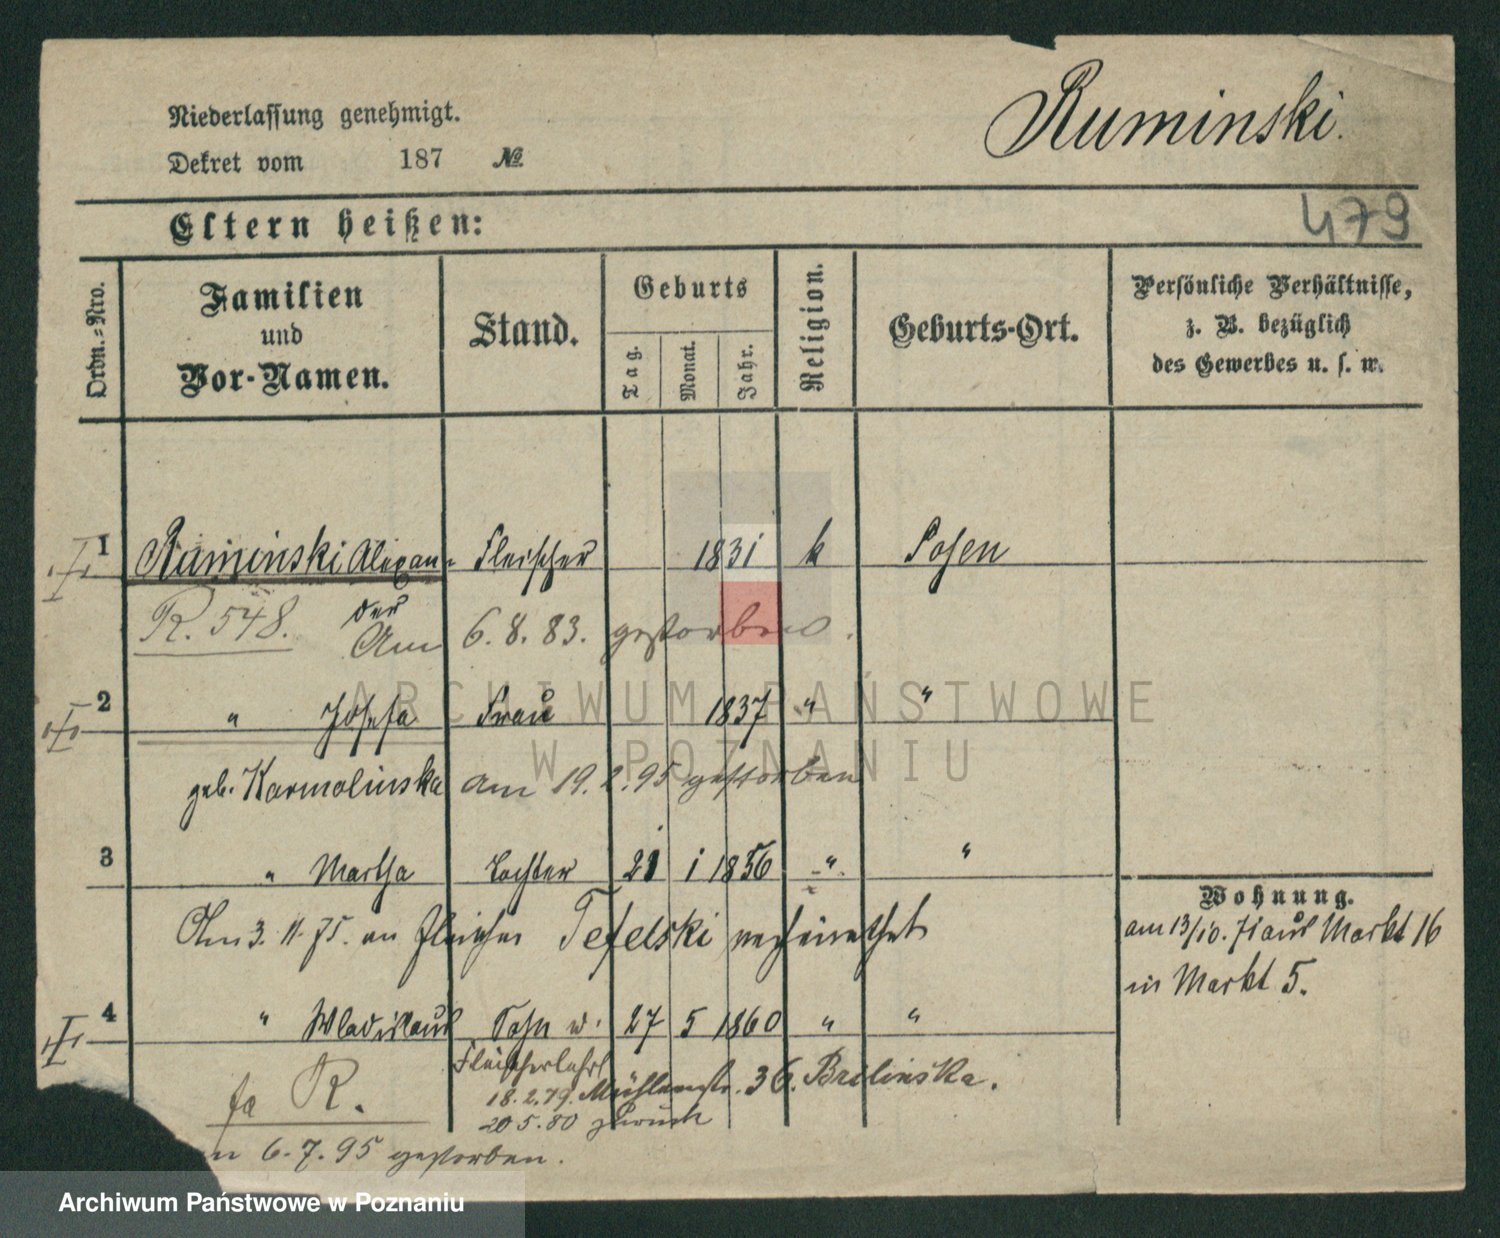 Niederlassung genehmigt.
Dekret vom 187 №
Ruminski.
479
Eltern heißen:
Ordn.-Nro.
Familien
und
Vor-Namen.
Stand.
Geburts
Tag.
Monat.
Jahr.
Religion.
Geburts-Ort.
Persönliche Verhältnisse,
z. B. bezüglich
des Gewerbes u. s. w.
1 Ruminski Alexan- Fleischer 1831 k Posen
der
R. 548. Am 6. 8. 83. gestorben.
2 " Josefa Frau 1837 " "
geb. Karmolinska am 19. 2. 95 gestorben
3 " Martha Tochter 21 1 1856 " "
Am 3. 11. 75. an Fleischer Tefelski verheirathet
Wohnung.
am 13/10. 71 aus Markt 16
in Markt 5.
4 " Wladislaus Sohn w. 27 5 1860 " "
Fleischerlehrl
18. 2. 79. Mühlenstr. 36. Brelinska.
fa R.
20 5. 80 zurück
6. 7. 95 gestorben.
ARCHIWUM PAŃSTWOWE
W POZNANIU
Archiwum Państwowe w Poznaniu